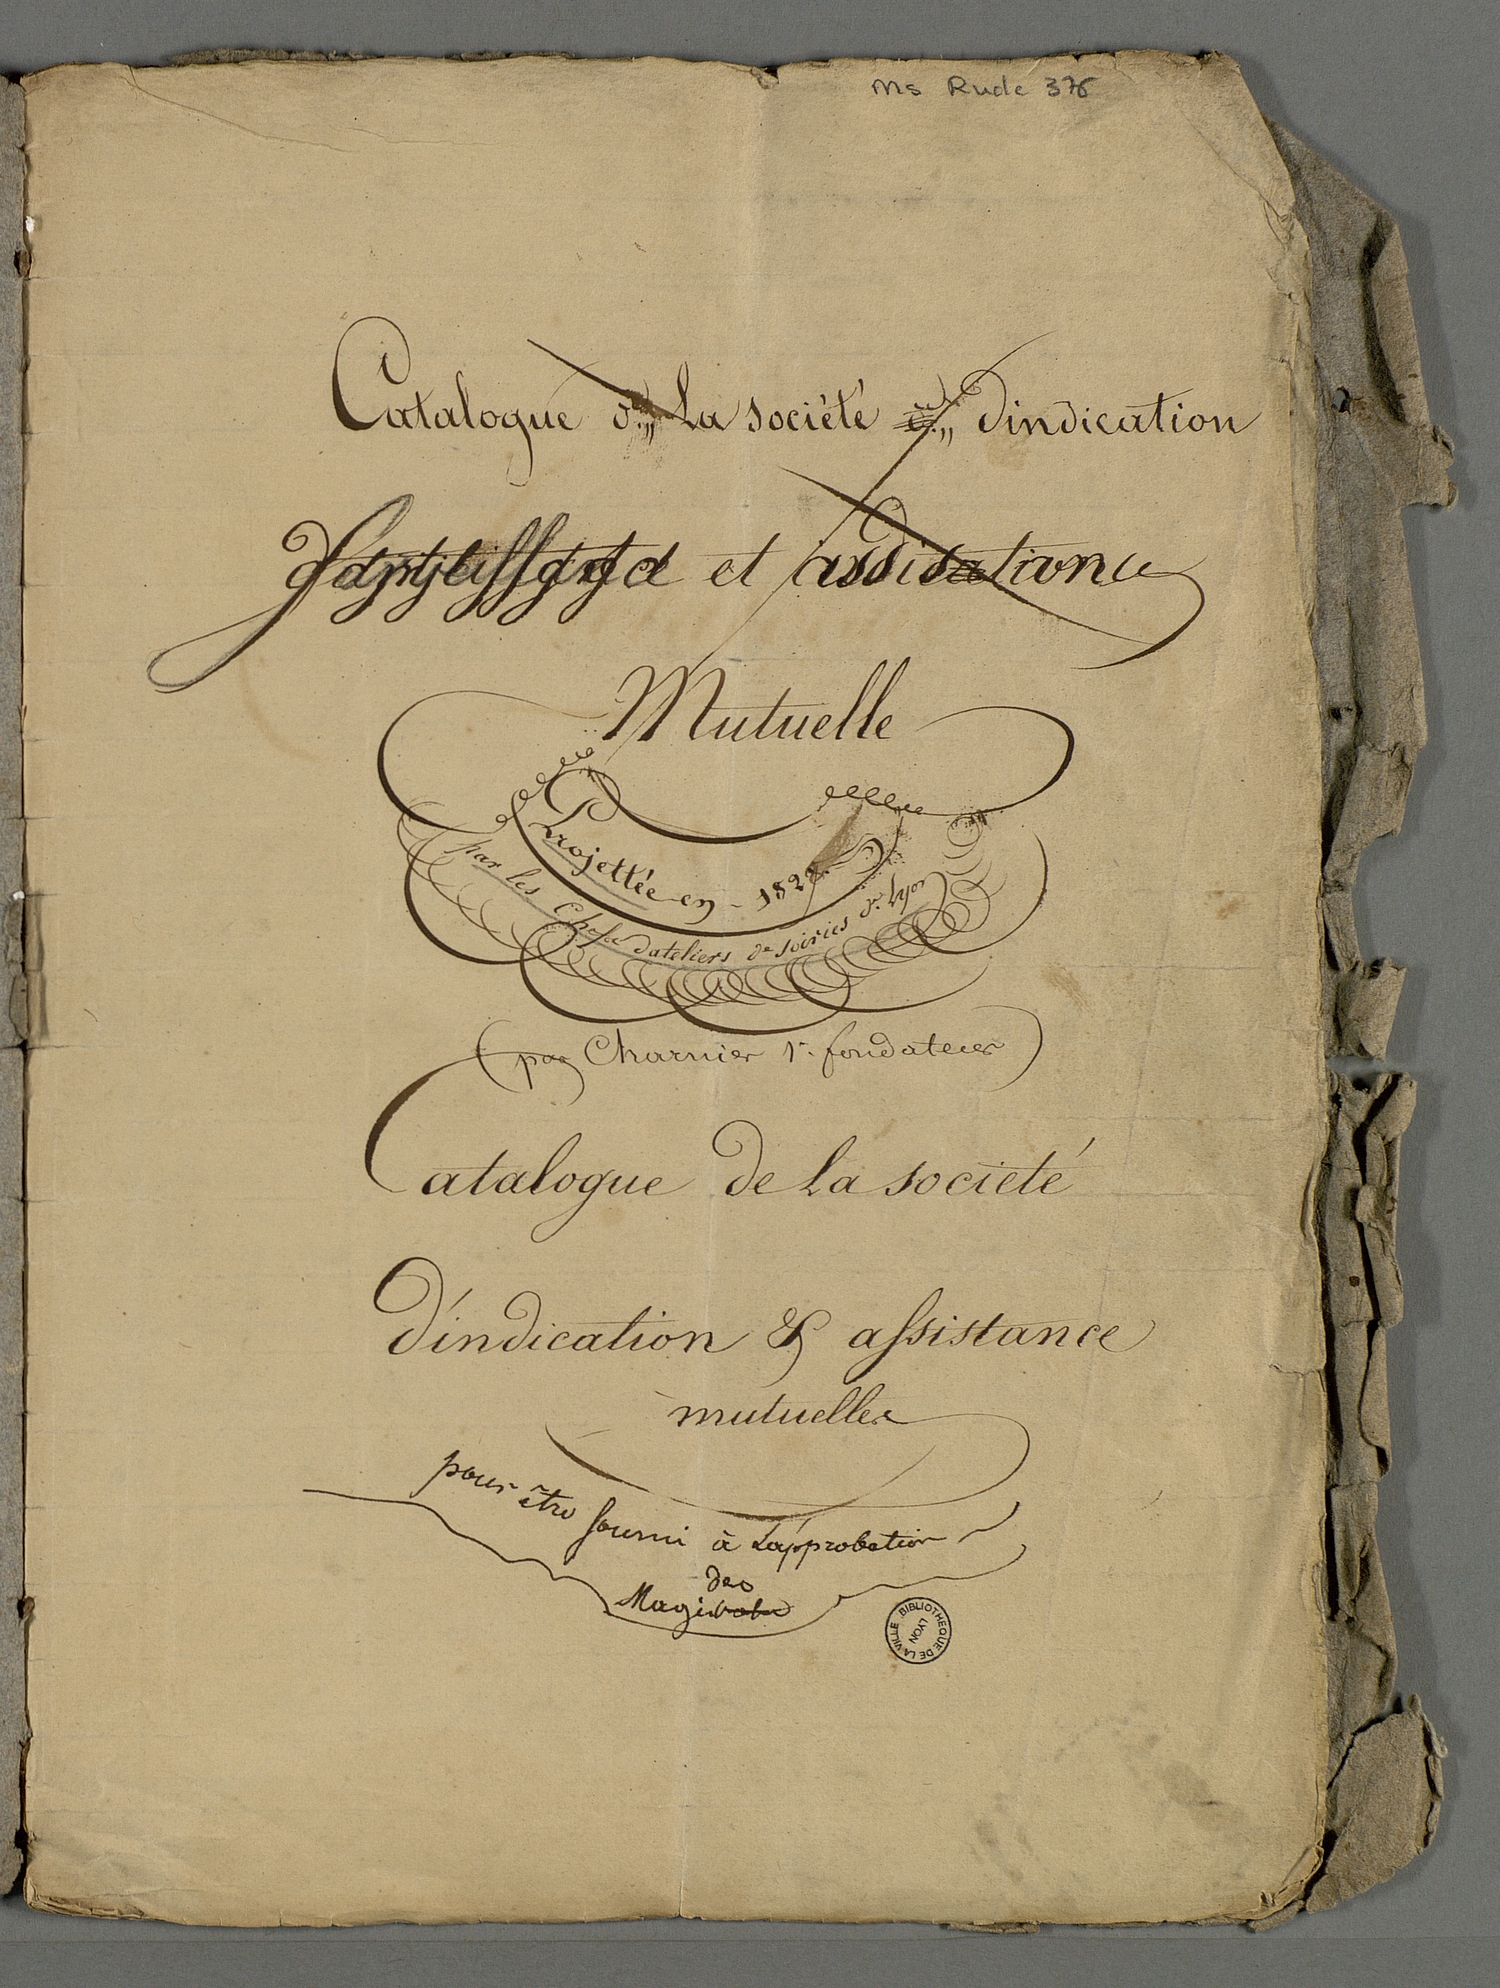 Ms Rude 376
Catalogue de La société dindication
et
Mutuelle
Projettée en - 1827
par les Chefs dateliers de soiries de Lyon
(par Charnier 1r fondateur)
Catalogue de La société
d'indication & assistance
mutuelles
pour être fourni à L'approbation
des
Magistrats
BIBLIOTHEQUE DE LA VILLE LYON